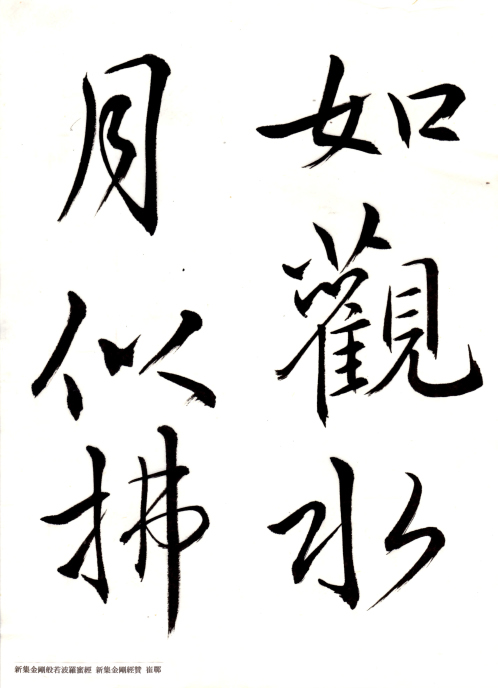 如觀水
月似拂
新集金剛般若波羅蜜經 新集金剛經贊 崔鄲